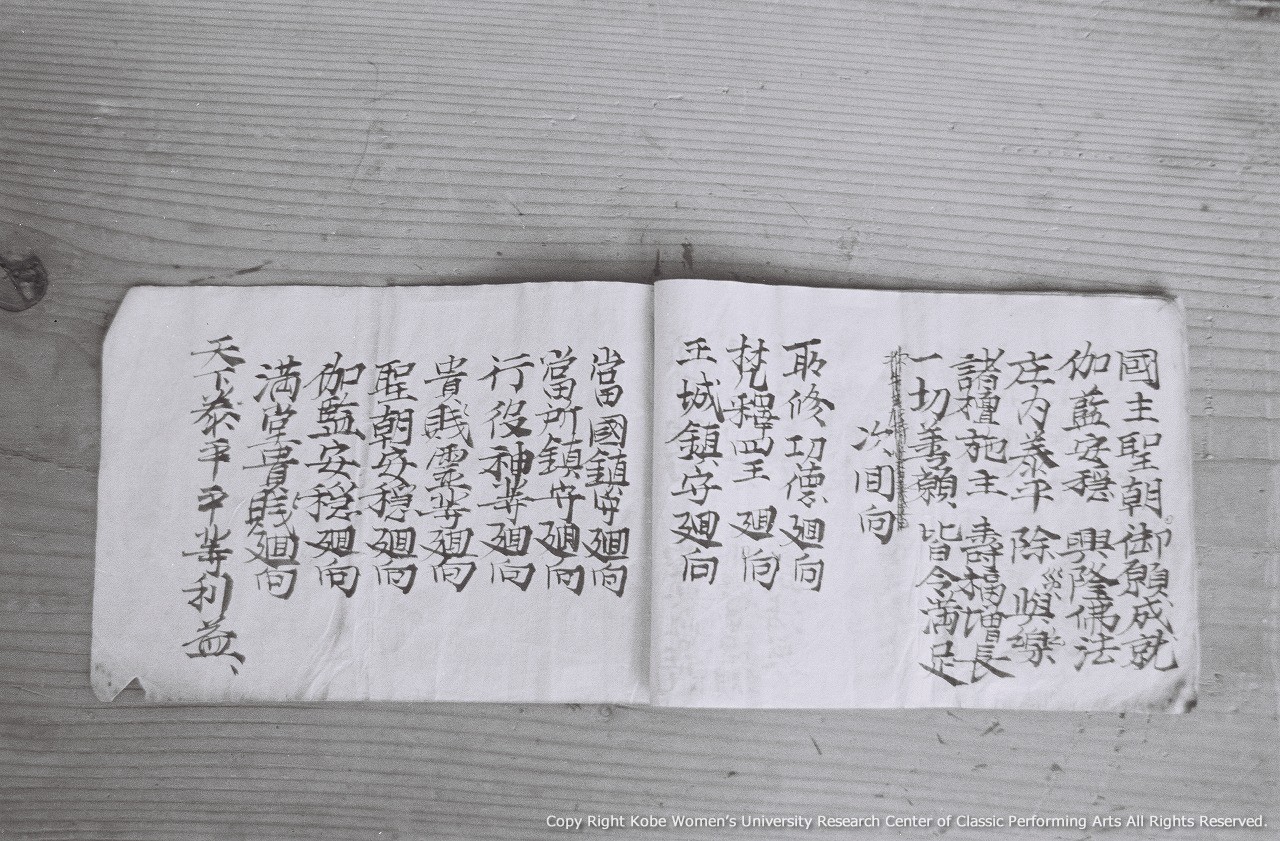 國主聖朝御願成就
伽藍安穏 興隆佛法
庄内泰平 除災與樂
諸檀施主 壽福増長
一切善願 皆令満足
次間向
所修功徳廻向
梵釋四王廻向
王城鎮守廻向
當國鎮守廻向
當所鎮守廻向
行役神等廻向
貴賎霊等廻向
聖朝安穏廻向
伽監安穏廻向
満堂貴賎廻向
天下泰平平等利益
Copy Right Kobe Women's University Research Center of Classic Performing Arts All Rights Reserved.